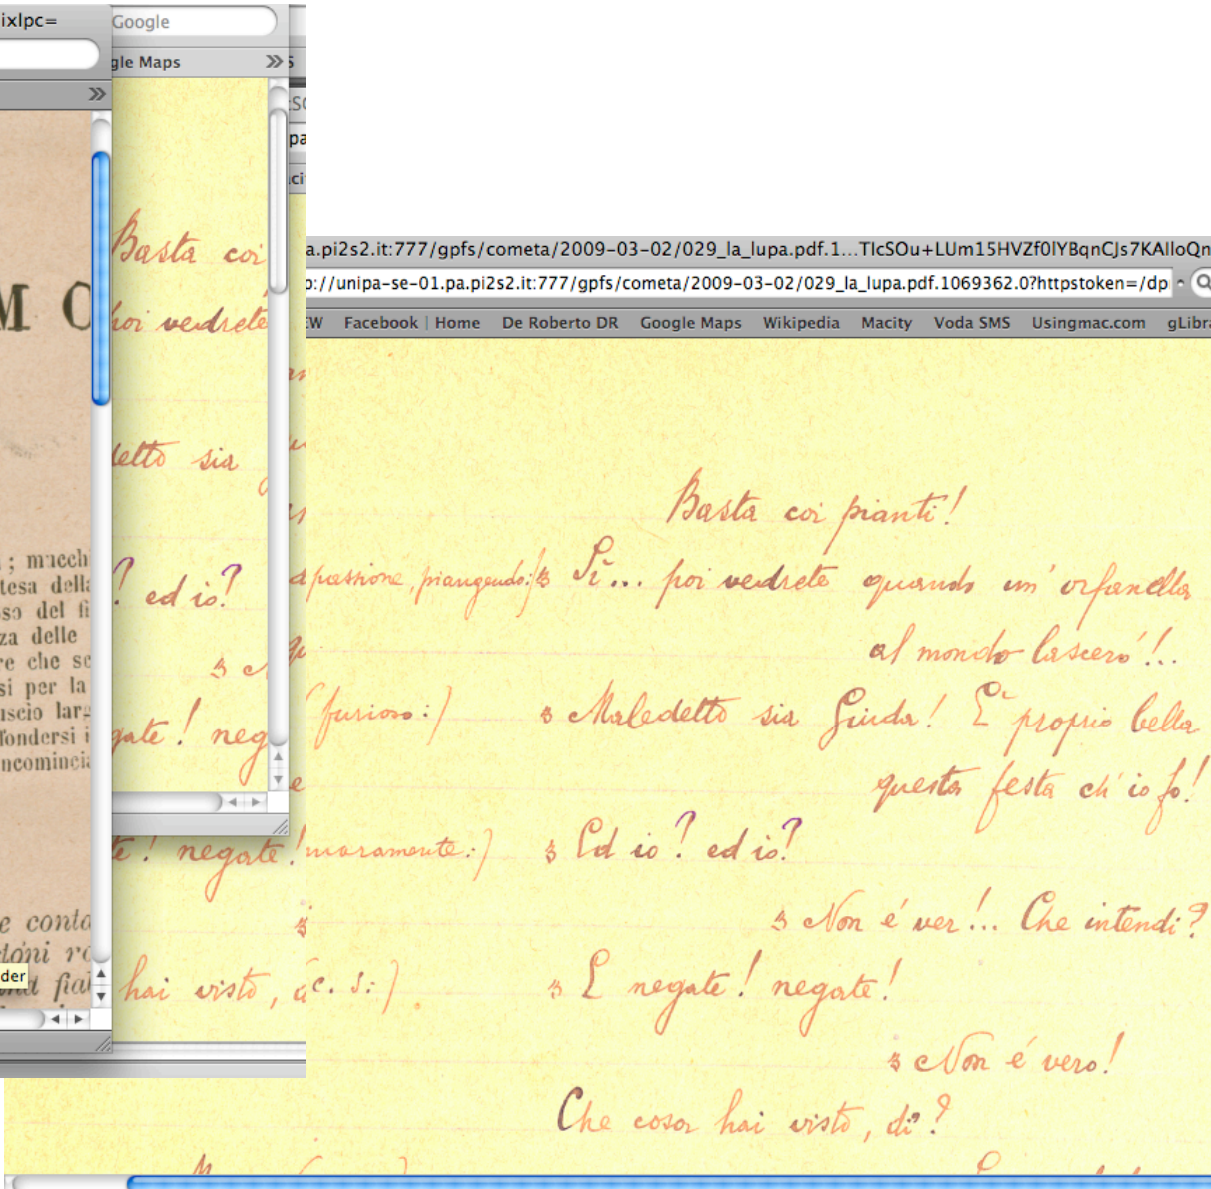 ixlpc=
Google
gle Maps
M C
; macch
tesa della
so del fi
za delle
re che se
si per la
uscio larg
fondersi i
ncomincia
e conta
der
Basta coi
poi vedrete
detto sia
? ed io?
gate! neg
te! negate!
hai visto,
a.pi2s2.it:777/gpfs/cometa/2009-03-02/029_la_lupa.pdf.1...TIcSOu+LUm15HVZf0lYBqnCJs7KAlloQn
p://unipa-se-01.pa.pi2s2.it:777/gpfs/cometa/2009-03-02/029_la_lupa.pdf.1069362.0?httpstoken=/dp
EW Facebook | Home De Roberto DR Google Maps Wikipedia Macity Voda SMS Usingmac.com gLibra
Basta coi pianti!
passione, piangendo:) Sì... poi vedrete quando un' orfanella
al mondo lascerò!..
(furioso:) Maledetto sia Giuda! È proprio bella
questa festa ch' io fo!
amaramente:) Ed io? ed io?
Non é ver!... Che intendi?
c. s:) E negate! negate!
Non é vero!
Che cosa hai visto, di?